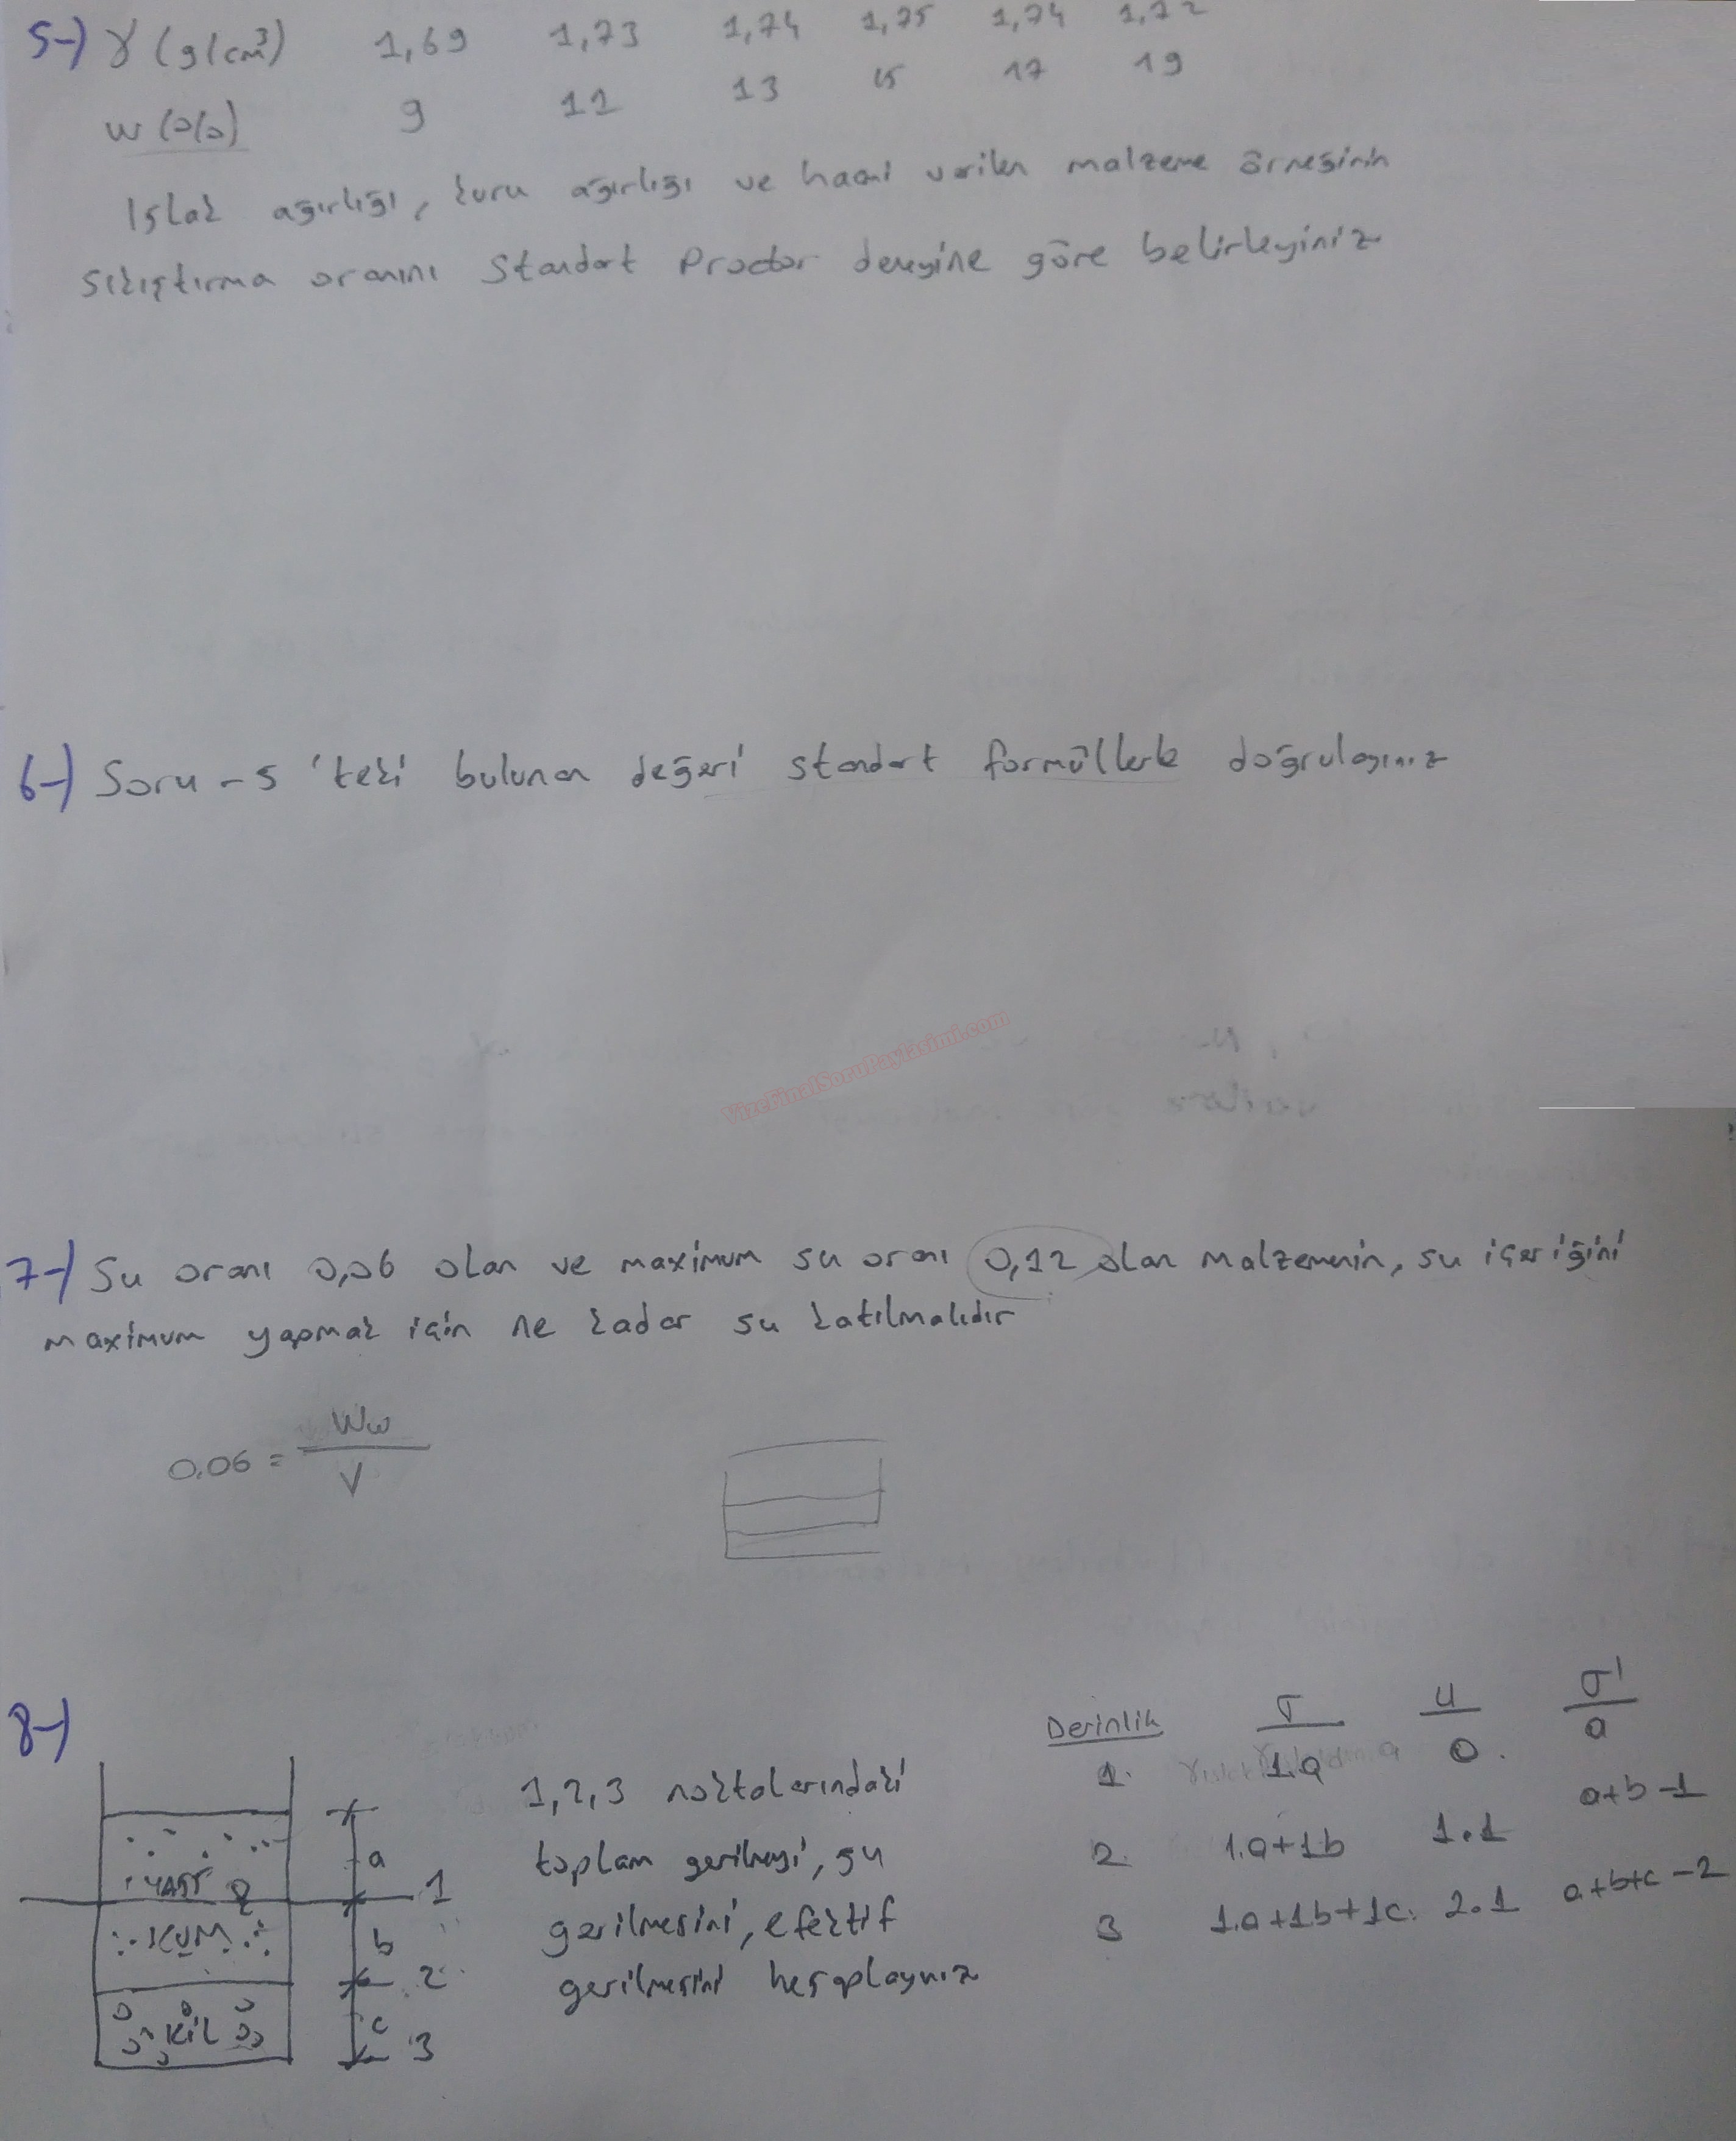 5-) γ (g/cm³) 1,69 1,73 1,74 1,75 1,74 1,72
w (%) 9 11 13 15 17 19
Islak ağırlığı, kuru ağırlığı ve hacmi verilen malzeme örneğinin
sıkıştırma oranını Standart Proctor deneyine göre belirleyiniz
6-) Soru-5 'teki bulunan değeri standart formüllerle doğrulayınız
VizeFinalSoruPaylasimi.com
7-) Su oranı 0,06 olan ve maximum su oranı 0,12 olan malzemenin, su içeriğini
maximum yapmak için ne kadar su katılmalıdır
0,06 = Ww / V
8-)
a
YASS
1
KUM
b
2
KİL
c
3
1,2,3 noktalarındaki
toplam gerilmeyi, su
gerilmesini, efektif
gerilmesini hesaplayınız
Derinlik σ u σ'
1. 1.a 0. a
2. 1.a+1b 1.1 a+b-1
3 1.a+1b+1c. 2.1 a+b+c-2